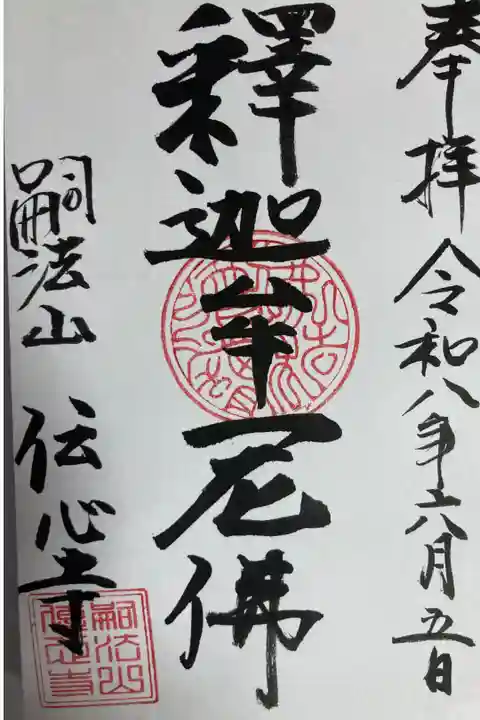 奉拝 令和八年六月五日
釋迦牟尼佛
嗣法山 伝心寺
嗣法山
傳心寺